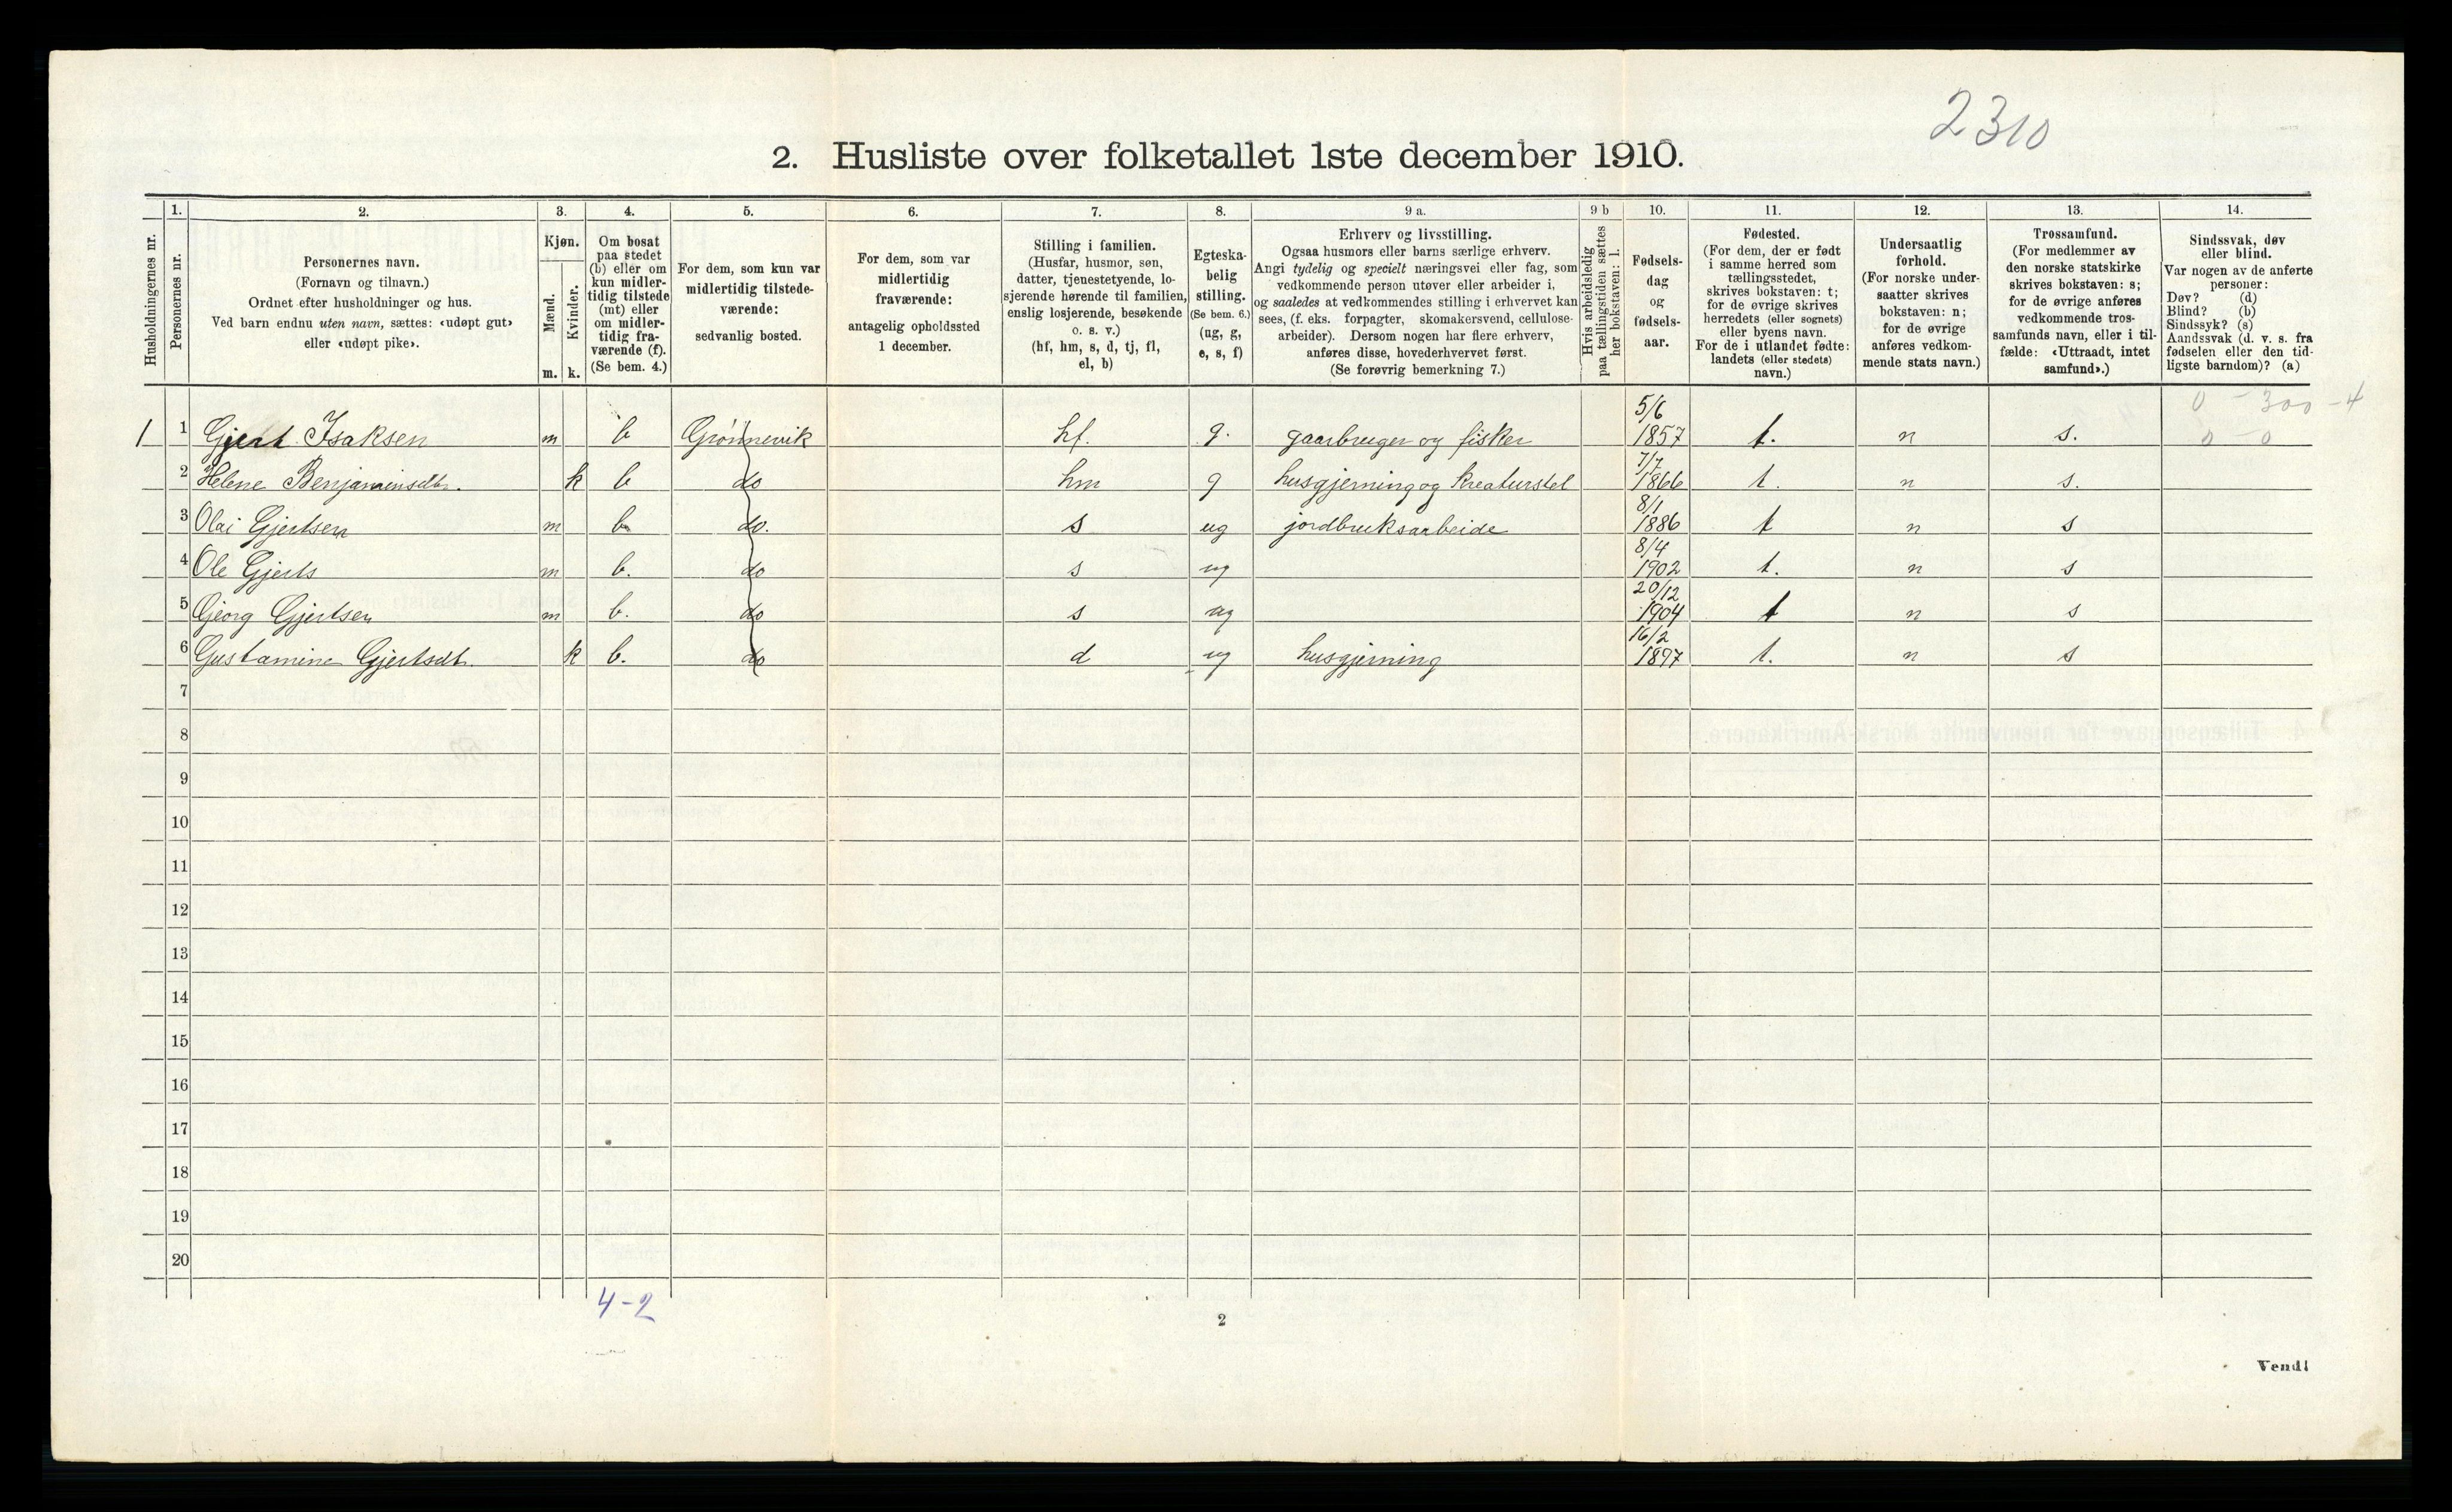 2310
2. Husliste over folketallet 1ste december 1910.
Husholdningernes nr.
1. Personernes nr.
2. Personernes navn. (Fornavn og tilnavn.) Ordnet efter husholdninger og hus. Ved barn endnu uten navn, sættes: «udøpt gut» eller «udøpt pike».
3. Kjøn. Mænd. m. Kvinder. k.
4. Om bosat paa stedet (b) eller om kun midlertidig tilstede (mt) eller om midlertidig fraværende (f). (Se bem. 4.)
5. For dem, som kun var midlertidig tilstedeværende: sedvanlig bosted.
6. For dem, som var midlertidig fraværende: antagelig opholdssted 1 december.
7. Stilling i familien. (Husfar, husmor, søn, datter, tjenestetyende, losjerende hørende til familien, enslig losjerende, besøkende o. s. v.) (hf, hm, s, d, tj, fl, el, b)
8. Egteskabelig stilling. (Se bem. 6.) (ug, g, e, s, f)
9 a. Erhverv og livsstilling. Ogsaa husmors eller barns særlige erhverv. Angi tydelig og specielt næringsvei eller fag, som vedkommende person utøver eller arbeider i, og saaledes at vedkommendes stilling i erhvervet kan sees, (f. eks. forpagter, skomakersvend, cellulosearbeider). Dersom nogen har flere erhverv, anføres disse, hovederhvervet først. (Se forøvrig bemerkning 7.)
9 b Hvis arbeidsledig paa tællingstiden sættes her bokstaven: l.
10. Fødselsdag og fødselsaar.
11. Fødested. (For dem, der er født i samme herred som tællingsstedet, skrives bokstaven: t; for de øvrige skrives herredets (eller sognets) eller byens navn. For de i utlandet fødte: landets (eller stedets) navn.)
12. Undersaatlig forhold. (For norske undersaatter skrives bokstaven: n; for de øvrige anføres vedkommende stats navn.)
13. Trossamfund. (For medlemmer av den norske statskirke skrives bokstaven: s; for de øvrige anføres vedkommende trossamfunds navn, eller i tilfælde: «Uttraadt, intet samfund».)
14. Sindssvak, døv eller blind. Var nogen av de anførte personer: Døv? (d) Blind? (b) Sindssyk? (s) Aandssvak (d. v. s. fra fødselen eller den tidligste barndom)? (a)
0 - 300 - 4
0 - 0
1 1 Gjert Isaksen m b Grönnevik hf. g. gaarbruger og fisker 5/6 1857 t. n s.
2 Helene Benjaminsdtr. k b do hm g husgjerning og Kreaturstel 7/7 1866 t. n s.
3 Olai Gjertsen m b do. s ug jordbruksarbeide 8/1 1886 t n s
4 Ole Gjerts m b. do s ug 8/4 1902 t. n s
5 Georg Gjertsen m b. do s ug 20/12 1904 t n s
6 Gustamine Gjertsdt. k b. do d ug husgjerning 16/2 1897 t. n s
7
8
9
10
11
12
13
14
15
16
17
18
19
20
4-2
2
Vend!